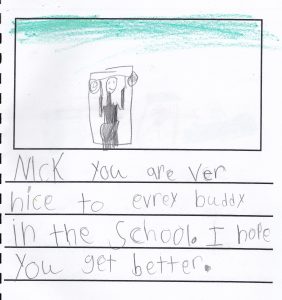 MrK you are ver
nice to evrey buddy
in the School. I hope
you get better.